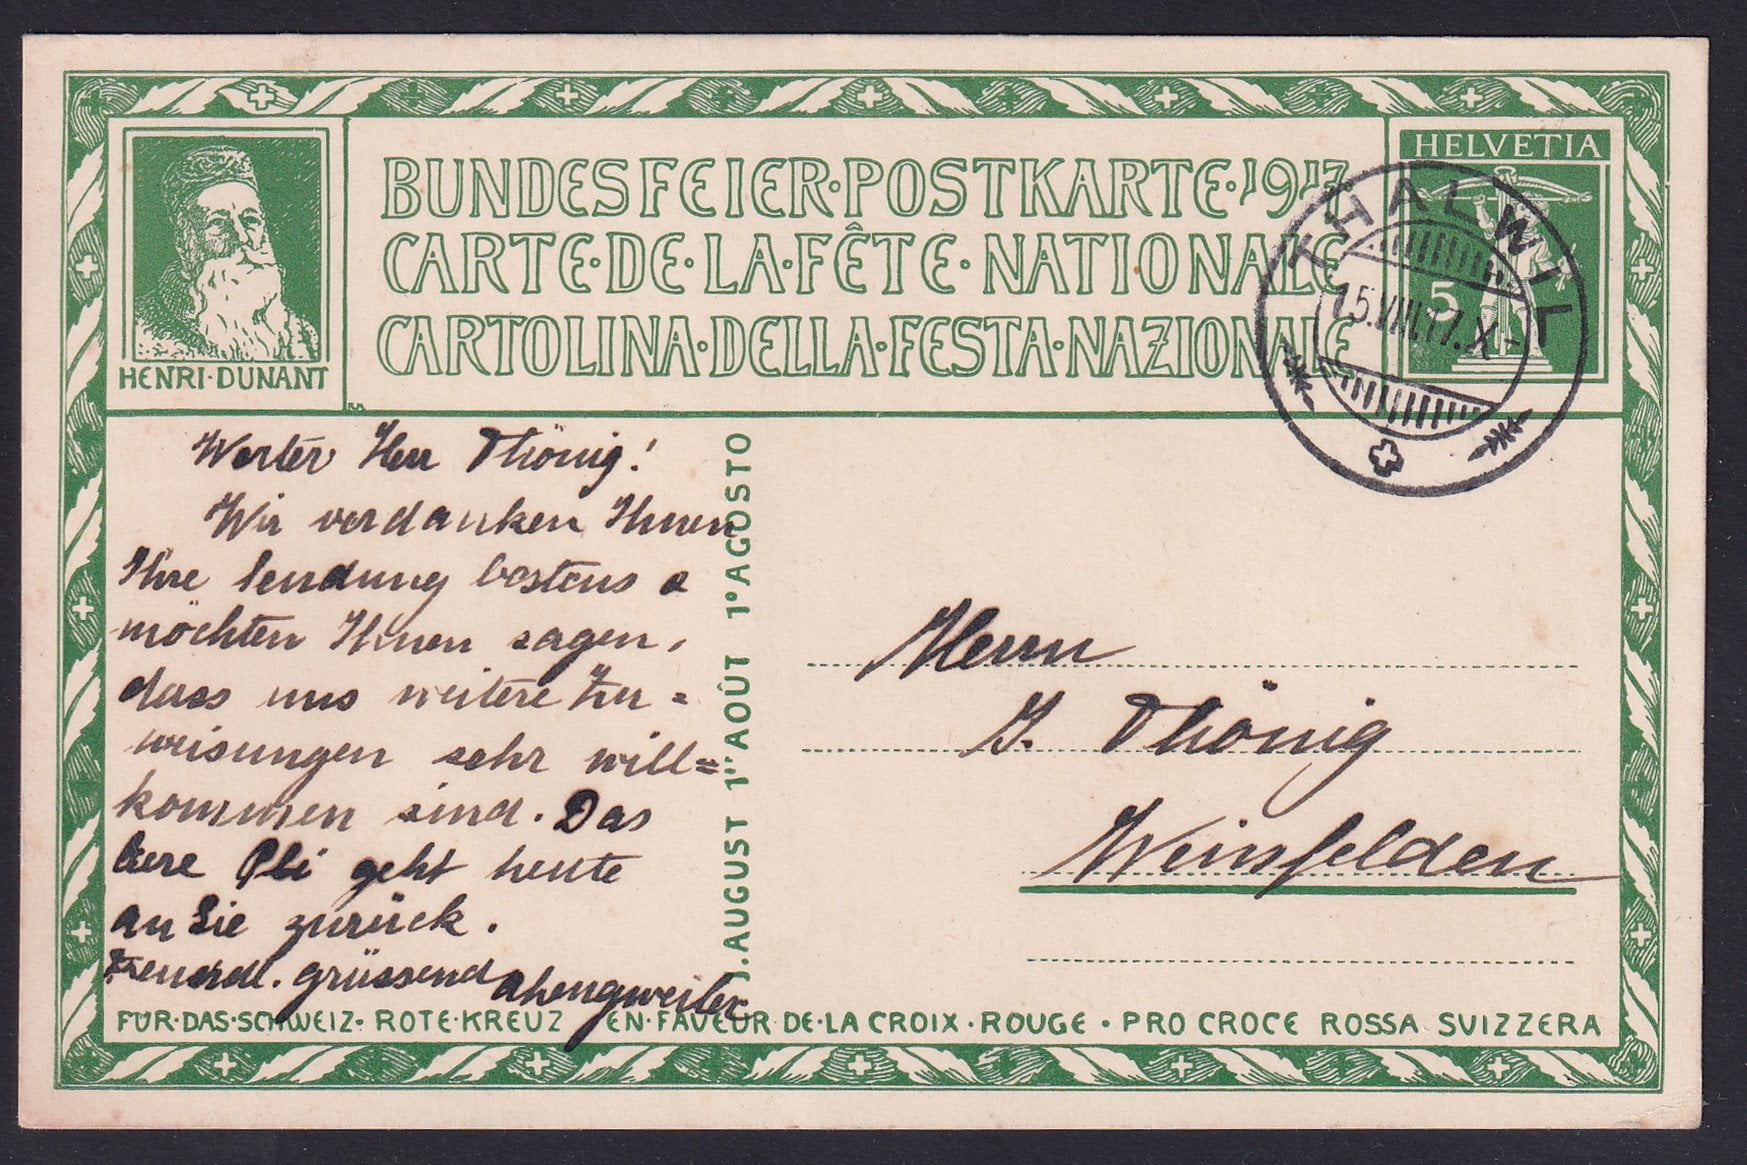 HENRI·DUNANT
BUNDESFEIER·POSTKARTE·1917
CARTE·DE·LA·FÊTE·NATIONALE
CARTOLINA·DELLA·FESTA·NAZIONALE
HELVETIA
5
THALWIL
15.VIII.17.X-
Werter Herr Thönig!
Wir verdanken Ihnen
Ihre Sendung bestens &
möchten Ihnen sagen,
dass uns weitere Zu=
weisungen sehr will=
kommen sind. Das
leere geht heute
an Sie zurück.
Freundl. grüssend
1. AUGUST 1er AOÛT 1º AGOSTO
Herrn
J. Thönig
Weinfelden
FÜR·DAS·SCHWEIZ·ROTE·KREUZ EN·FAVEUR DE·LA CROIX·ROUGE·PRO CROCE ROSSA SVIZZERA